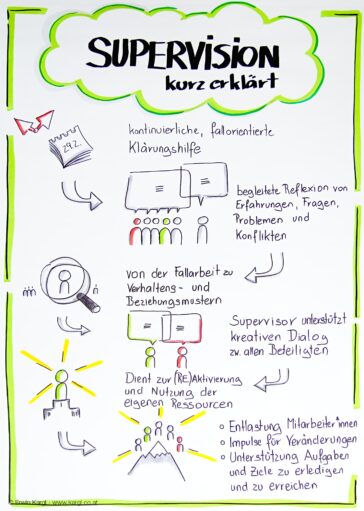 SUPERVISION
kurz erklärt
29.2.
kontinuierliche, fallorientierte
Klärungshilfe
begleitete Reflexion von
Erfahrungen, Fragen,
Problemen und
Konflikten
von der Fallarbeit zu
Verhaltens- und
Beziehungsmustern
Supervisor unterstützt
kreativen Dialog
zw. allen Beteiligten
Dient zur (RE)Aktivierung
und Nutzung der
eigenen Ressourcen
o Entlastung Mitarbeiter*innen
o Impulse für Veränderungen
o Unterstützung Aufgaben
und Ziele zu erledigen
und zu erreichen
© Erwin Kargl - www.kargl.co.at